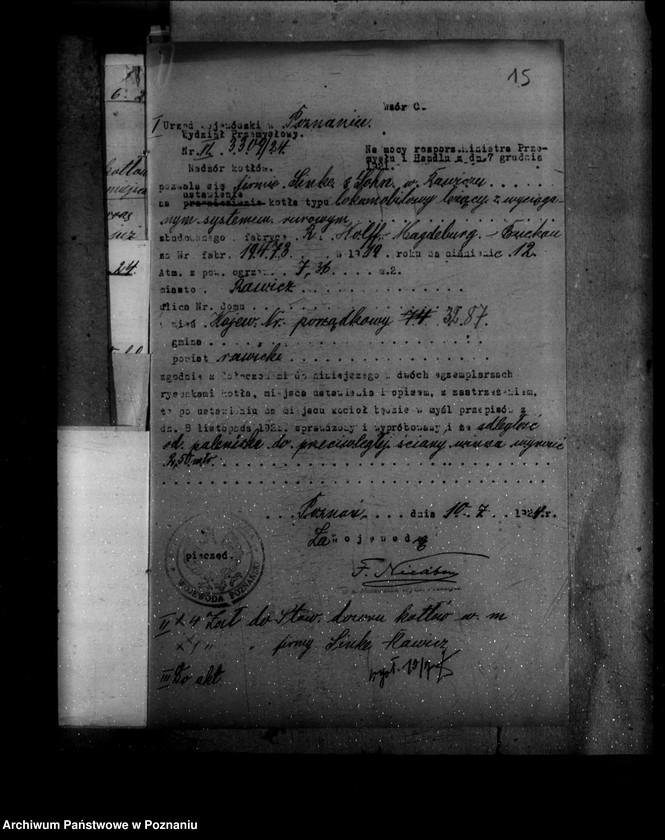 15
Wzór C.
I Urząd Wojewódzki w Poznaniu.
Wydział Przemysłowy.
Nr. 3309/24
Na mocy rozporz. Ministra Prze-
mysłu i Handlu z dn. 7 grudnia
1921.
Nadzór kotłów.
pozwala się firmie Linke & Sohn w Rawiczu
ustawienie
na przeniesienie kotła typu lokomobilowy leżący z wyciąga-
nym systemem rurowym
zbudowanego w fabryce R. Wolff Magdeburg - Buckau
za Nr fabr. 19473 w 1919 roku na ciśnienie 12
Atm. z pow. ogrzew. 7,36 m.2.
miasto Rawicz
ulica Nr. domu
Wojew. Nr. porządkowy 3287.
gmina
powiat rawicki
zgodnie z dołączonemi do niniejszego w dwóch egzemplarzach
rysunkami kotła, miejsca ustawienia i opisem, z zastrzeżeniem,
że po ustawieniu na miejscu kocioł będzie w myśl przepisów z
dn. 8 listopada 192 sprawdzony i wypróbowany i że odległość
od paleniska do przeciwległej ściany winna wynosić
2,50 mtr.
Poznań, dnia 10. 7. 1924 r.
Za wojewodę
pieczęć.
WOJEWODA POZNAŃSKI
II do Stow. dozoru kotłów w m
" firmy Linke Rawicz
III Do akt.
Archiwum Państwowe w Poznaniu